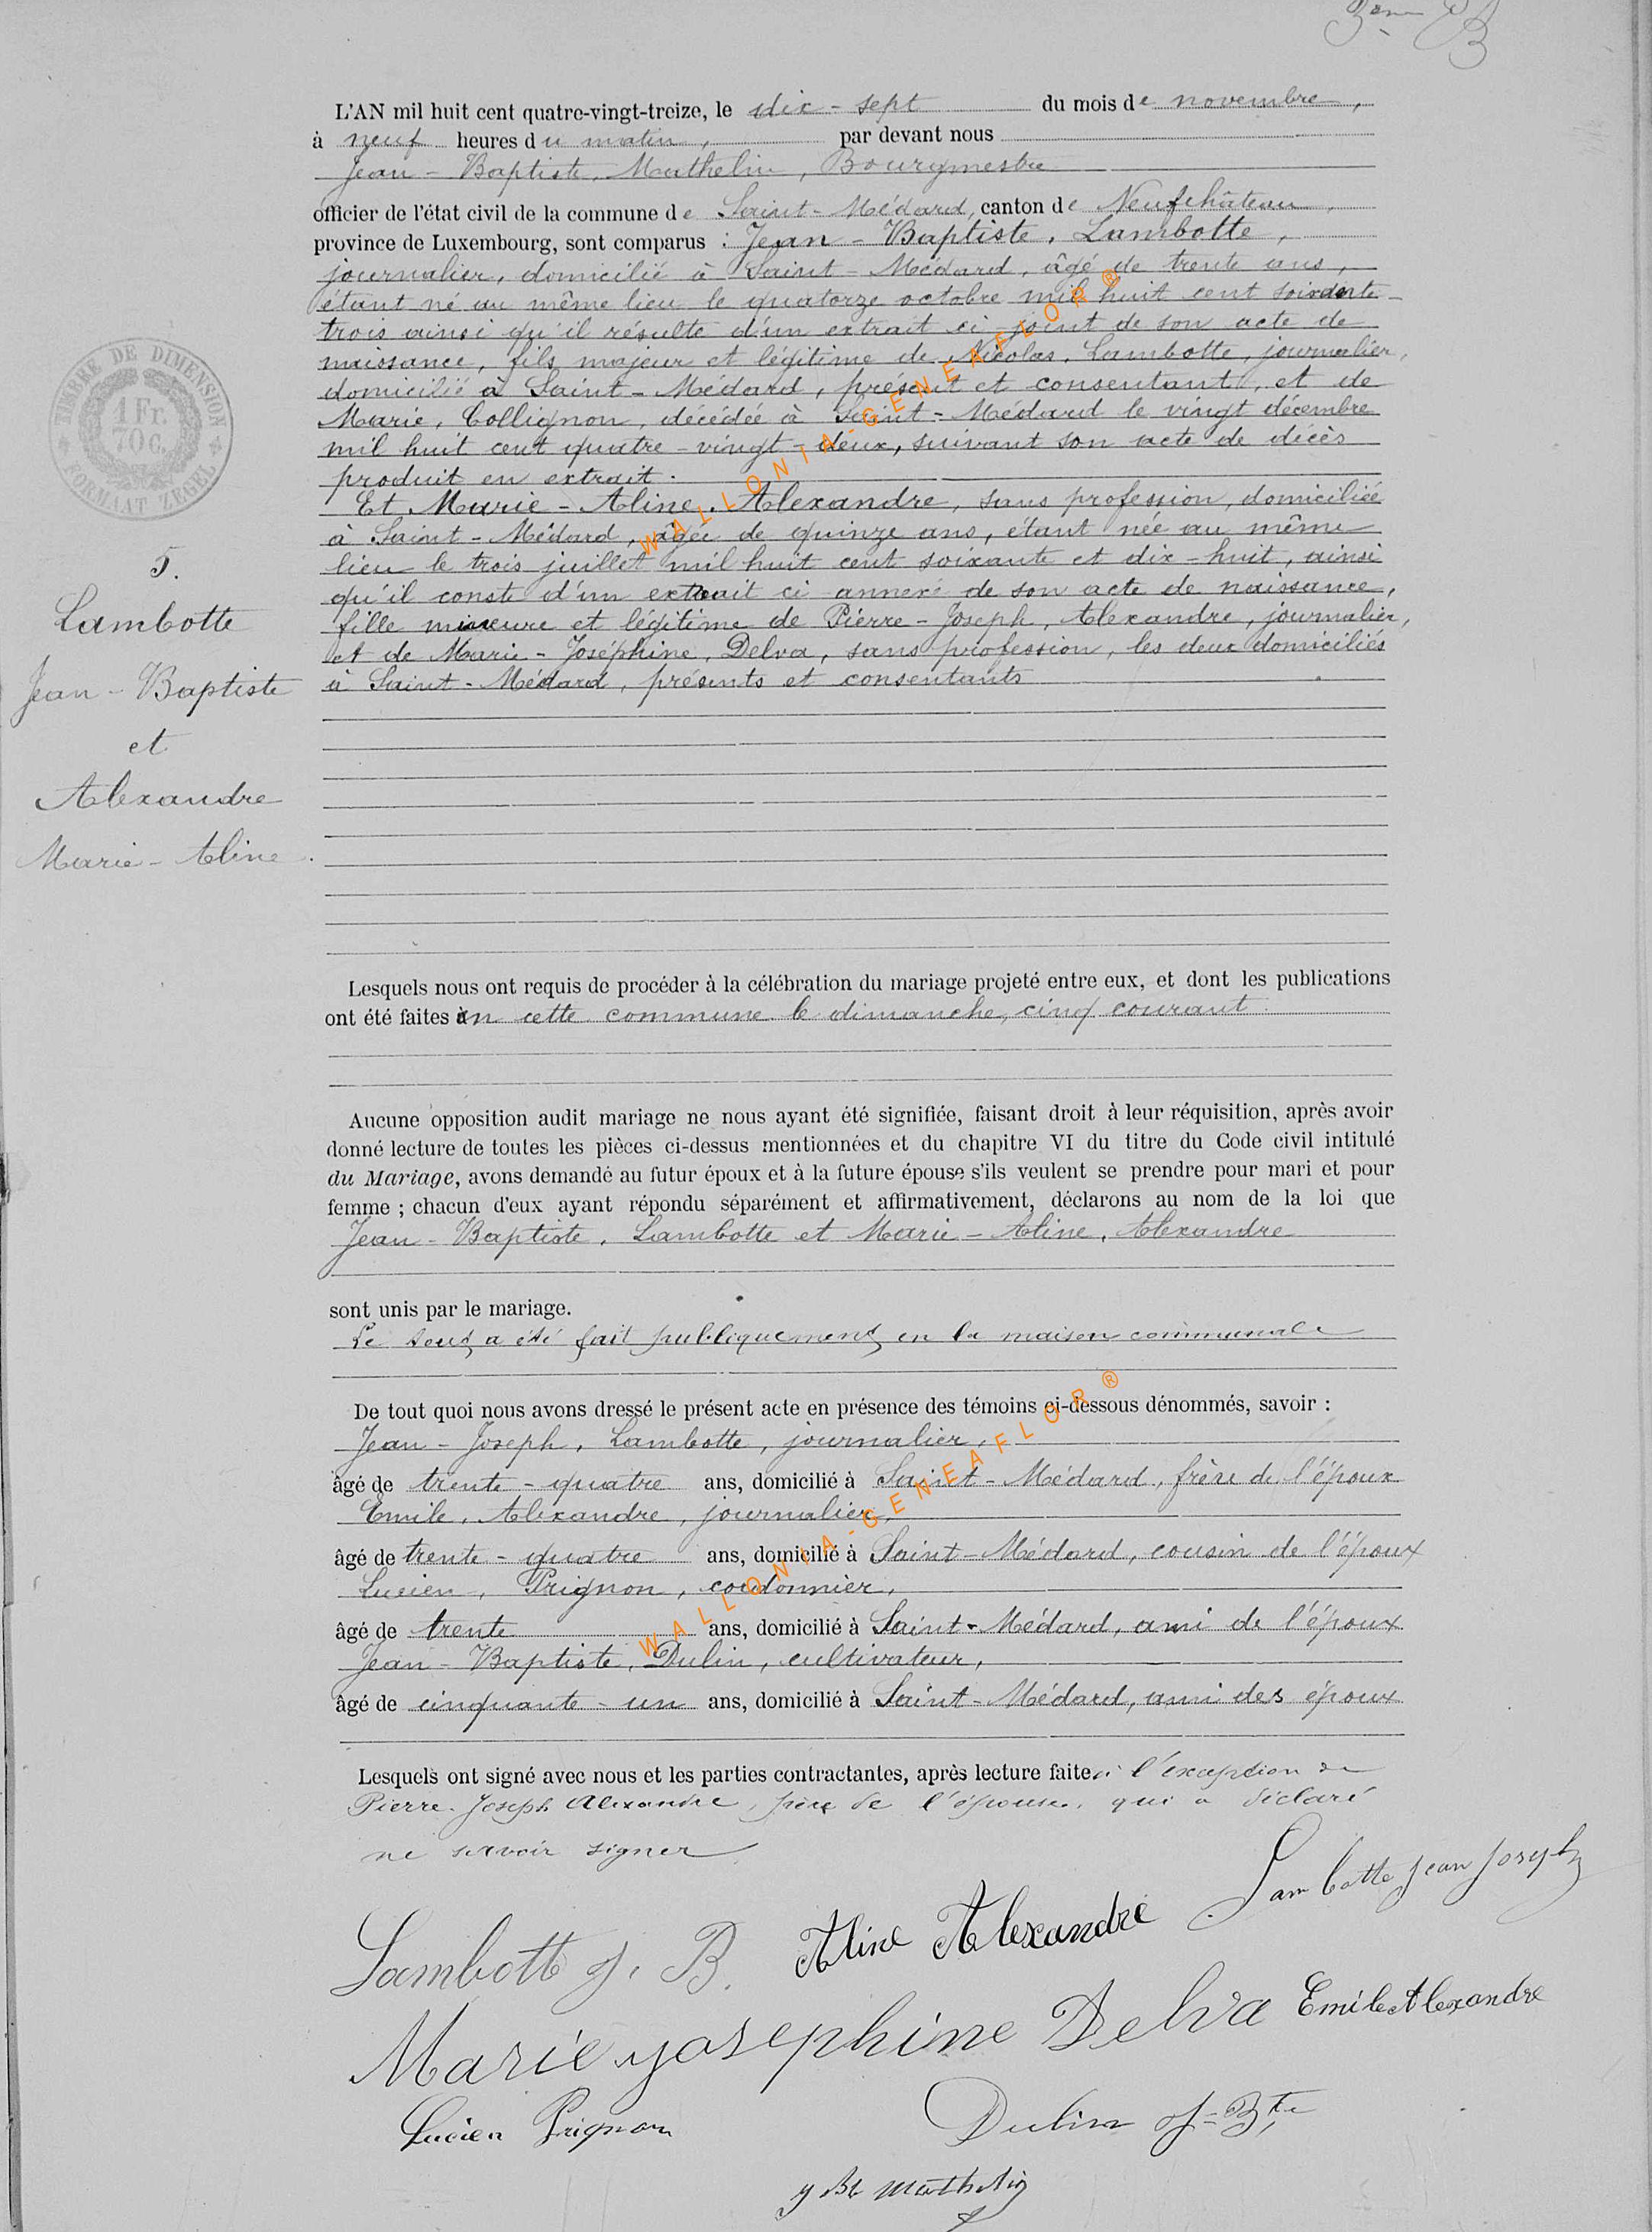 3eme B
L'AN mil huit cent quatre-vingt-treize, le dix-sept du mois de novembre,
à neuf heures du matin, par devant nous
Jean-Baptiste, Mathelin, Bourgmestre
officier de l'état civil de la commune de Saint-Médard, canton de Neufchâteau,
province de Luxembourg, sont comparus : Jean-Baptiste, Lambotte,
journalier, domicilié à Saint-Médard, âgé de trente ans,
étant né au même lieu le quatorze octobre mil huit cent soixante-
trois ainsi qu'il résulte d'un extrait ci-joint de son acte de
naissance, fils majeur et légitime de Nicolas, Lambotte, journalier,
domicilié à Saint-Médard, présent et consentant, et de
Marie, Collignon, décédée à Saint-Médard le vingt décembre
mil huit cent quatre-vingt-deux, suivant son acte de décès
produit en extrait.
Et Marie-Aline, Alexandre, sans profession, domiciliée
à Saint-Médard, âgée de quinze ans, étant née au même
lieu le trois juillet mil huit cent soixante et dix-huit, ainsi
qu'il conste d'un extrait ci annexé de son acte de naissance,
fille mineure et légitime de Pierre-Joseph, Alexandre, journalier,
et de Marie-Joséphine, Delva, sans profession, les deux domiciliés
à Saint-Médard, présents et consentants
TIMBRE DE DIMENSION
1 Fr.
70 C.
FORMAAT ZEGEL
5.
Lambotte
Jean-Baptiste
et
Alexandre
Marie-Aline.
Lesquels nous ont requis de procéder à la célébration du mariage projeté entre eux, et dont les publications
ont été faites en cette commune le dimanche, cinq courant
Aucune opposition audit mariage ne nous ayant été signifiée, faisant droit à leur réquisition, après avoir
donné lecture de toutes les pièces ci-dessus mentionnées et du chapitre VI du titre du Code civil intitulé
du Mariage, avons demandé au futur époux et à la future épouse s'ils veulent se prendre pour mari et pour
femme ; chacun d'eux ayant répondu séparément et affirmativement, déclarons au nom de la loi que
Jean-Baptiste, Lambotte et Marie-Aline, Alexandre
sont unis par le mariage.
Le tout a été fait publiquement en la maison communale
De tout quoi nous avons dressé le présent acte en présence des témoins ci-dessous dénommés, savoir :
Jean-Joseph, Lambotte, journalier,
âgé de trente-quatre ans, domicilié à Saint-Médard, frère de l'époux
Emile, Alexandre, journalier,
âgé de trente-quatre ans, domicilié à Saint-Médard, cousin de l'époux
Lucien, Prignon, cordonnier,
âgé de trente ans, domicilié à Saint-Médard, ami de l'époux
Jean-Baptiste, Dulin, cultivateur,
âgé de cinquante-un ans, domicilié à Saint-Médard, ami des époux
Lesquels ont signé avec nous et les parties contractantes, après lecture faite à l'exception de
Pierre-Joseph Alexandre, père de l'épouse, qui a déclaré
ne savoir signer
Lambotte J. B. Aline Alexandre Lambotte Jean Joseph
Marie josephine Delva Emile Alexandre
Lucien Prignon Dulin J-Bte
J Bte Mathelin
WALLONIA-GENEAFLOR®
WALLONIA-GENEAFLOR®